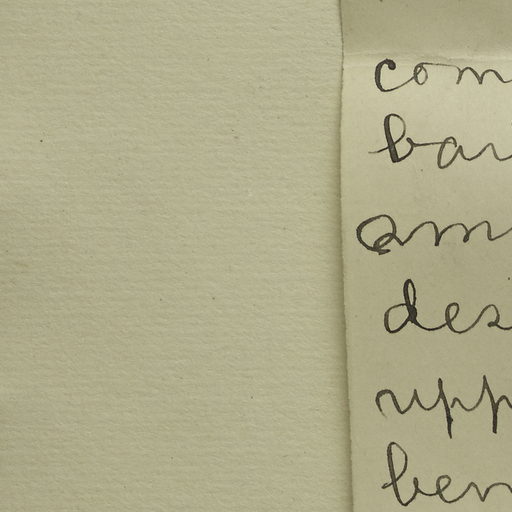 com
bar
am
des
upp
ben